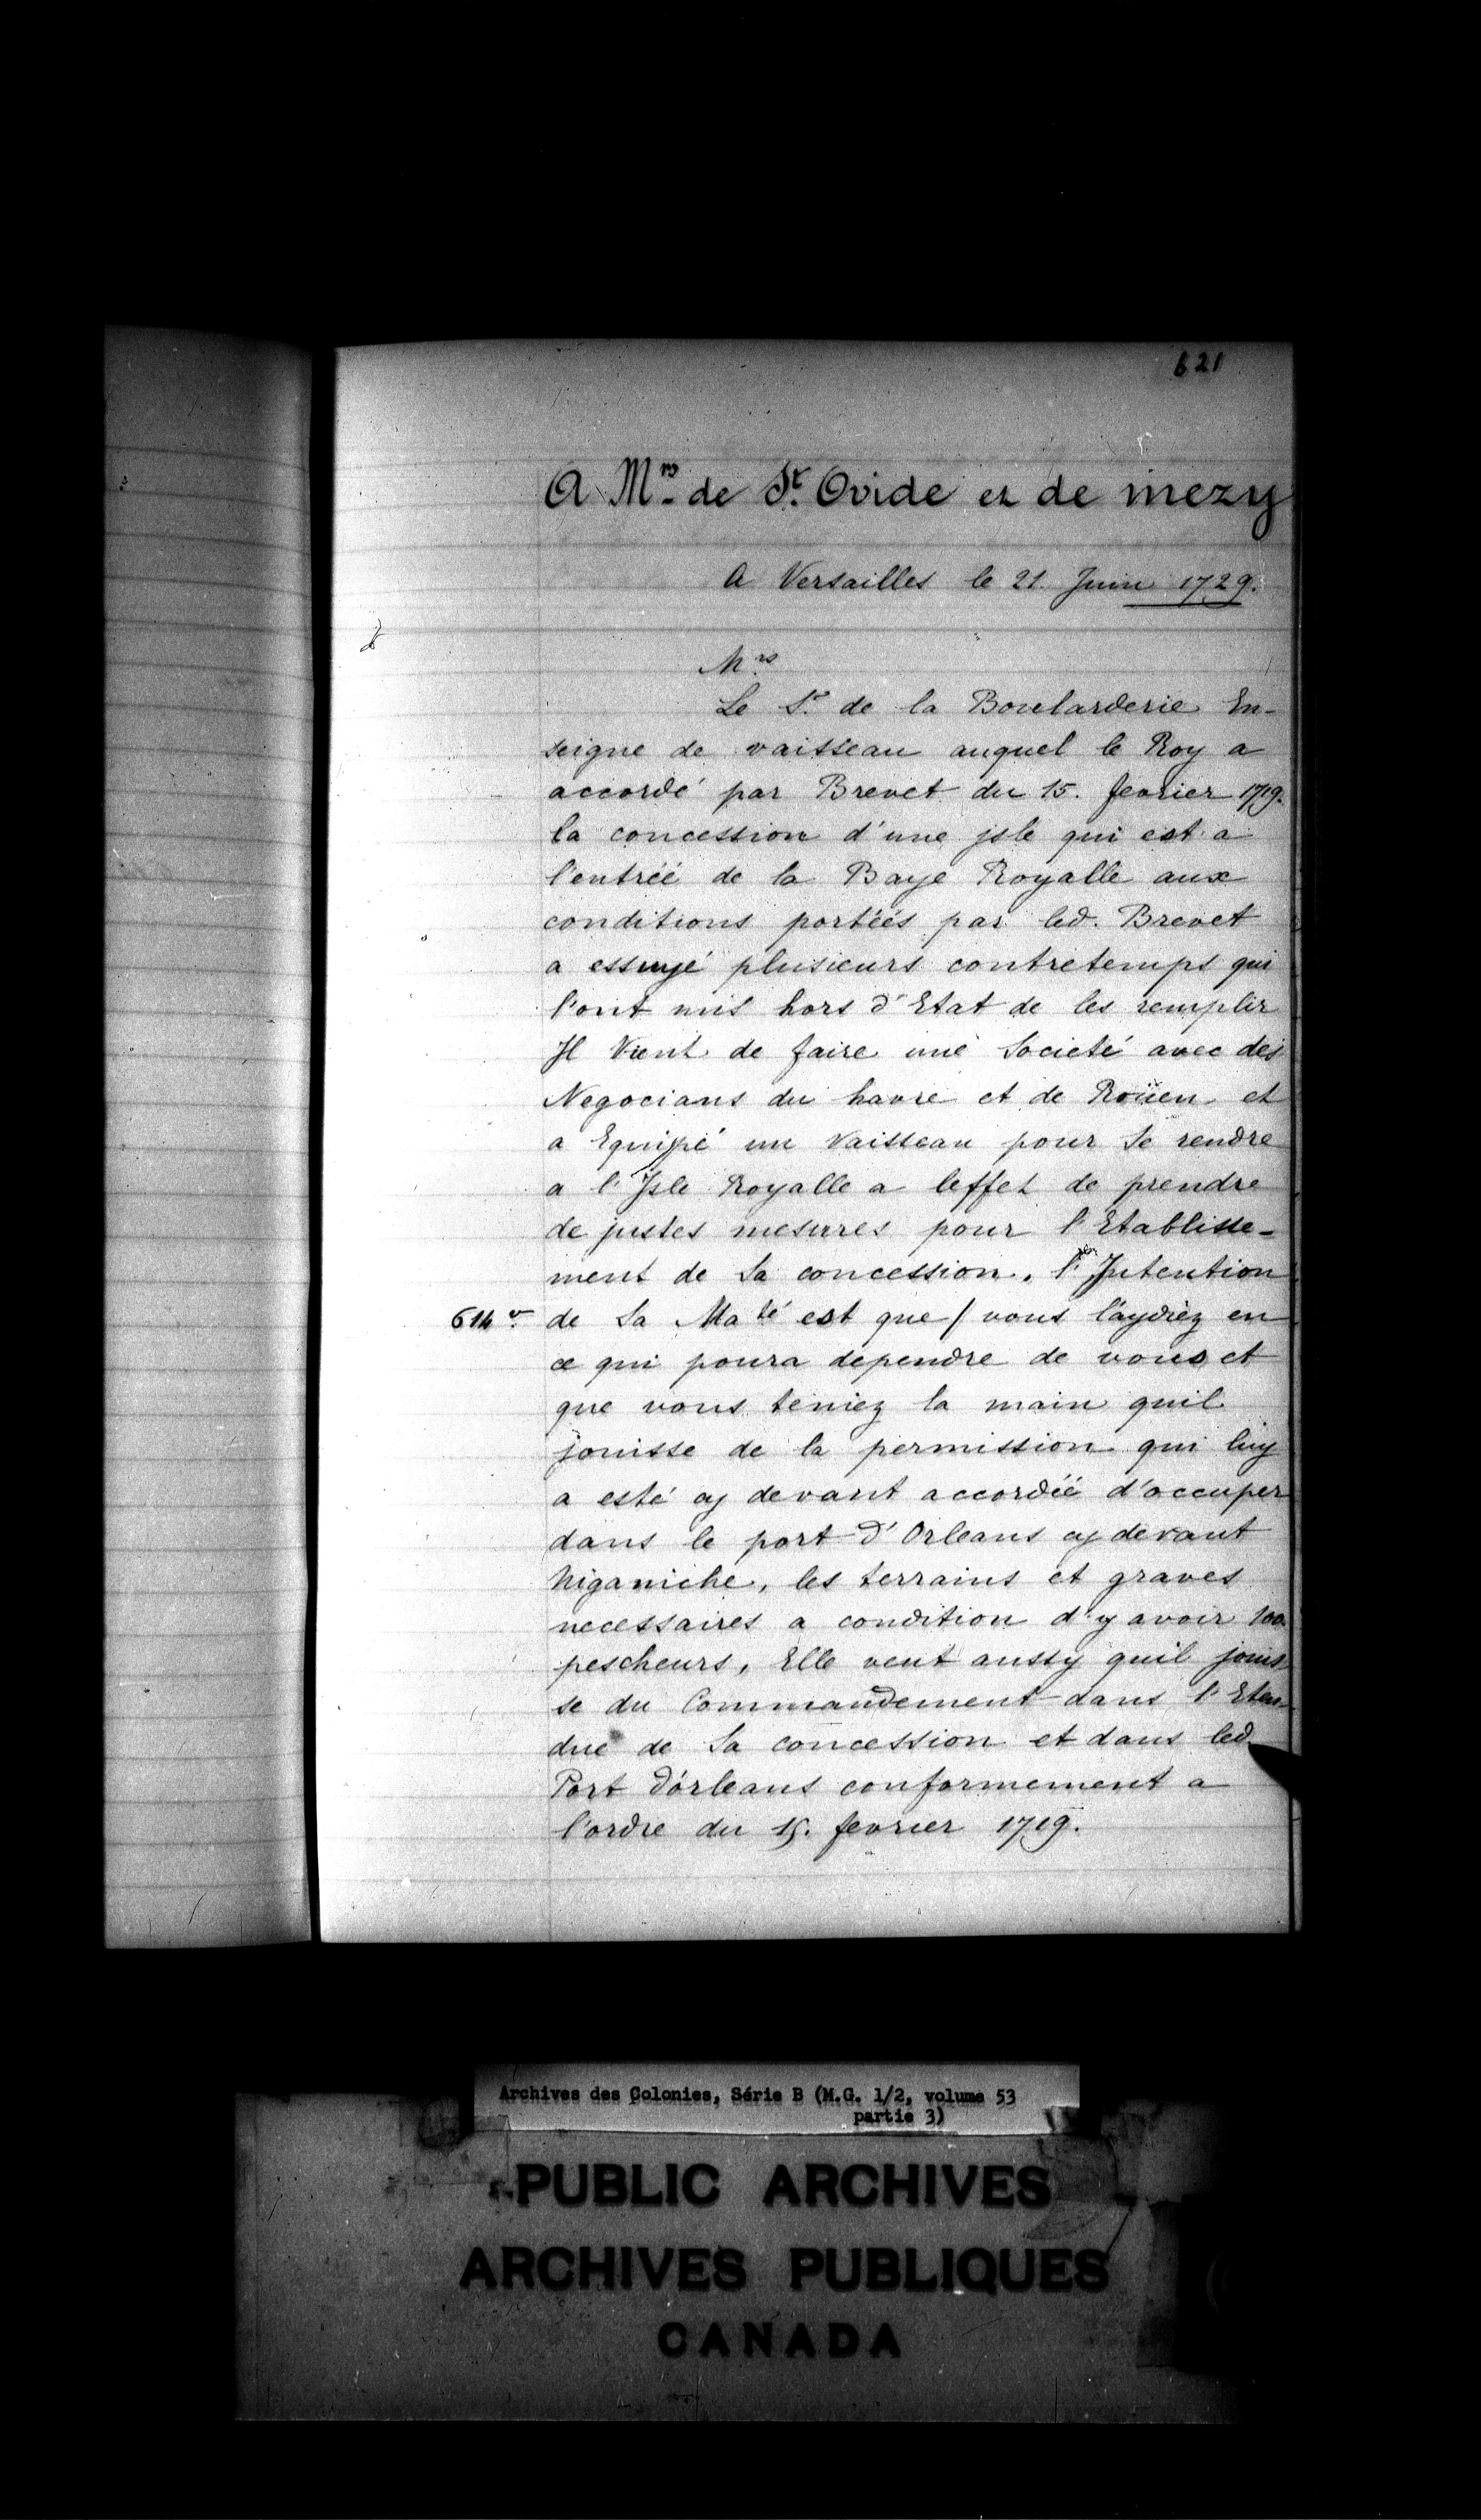 621
A Mrs de St. Ovide et de mezy
A Versailles le 21. Juin 1729.
Mrs
Le Sr. de la Boularderie En-
seigne de vaisseau auquel le Roy a
accordé par Brevet du 15. fevrier 1719.
la concession d'une jsle qui est a
l'entréé de la Baye Royalle aux
conditions portéés par led. Brevet
a essuyé plusieurs contretemps qui
l'ont mis hors d'Etat de les remplir
Il Vient de faire une Societé avec des
Negocians du havre et de Roüen et
a Equipé un Vaisseau pour Se rendre
a l'Isle Royalle a leffet de prendre
de justes mesures pour l'Etablisse-
ment de Sa concession. l'Intention
614 v. de Sa Maté est que / vous l'aydiez en
ce qui poura dependre de vous et
que vous teniez la main quil
jouisse de la permission qui luy
a esté cy devant accordéé d'occuper
dans le port d'Orleans cy devant
Niganiche, les terrains et graves
necessaires a condition d'y avoir 100.
pescheurs, Elle veut aussy quil jouis-
se du Commandement dans l'Eten-
due de Sa concession et dans led.
Port d'orleans conformement a
l'ordre du 15. fevrier 1719.
Archives des Colonies, Série B (M.G. 1/2, volume 53
partie 3)
PUBLIC ARCHIVES
ARCHIVES PUBLIQUES
CANADA